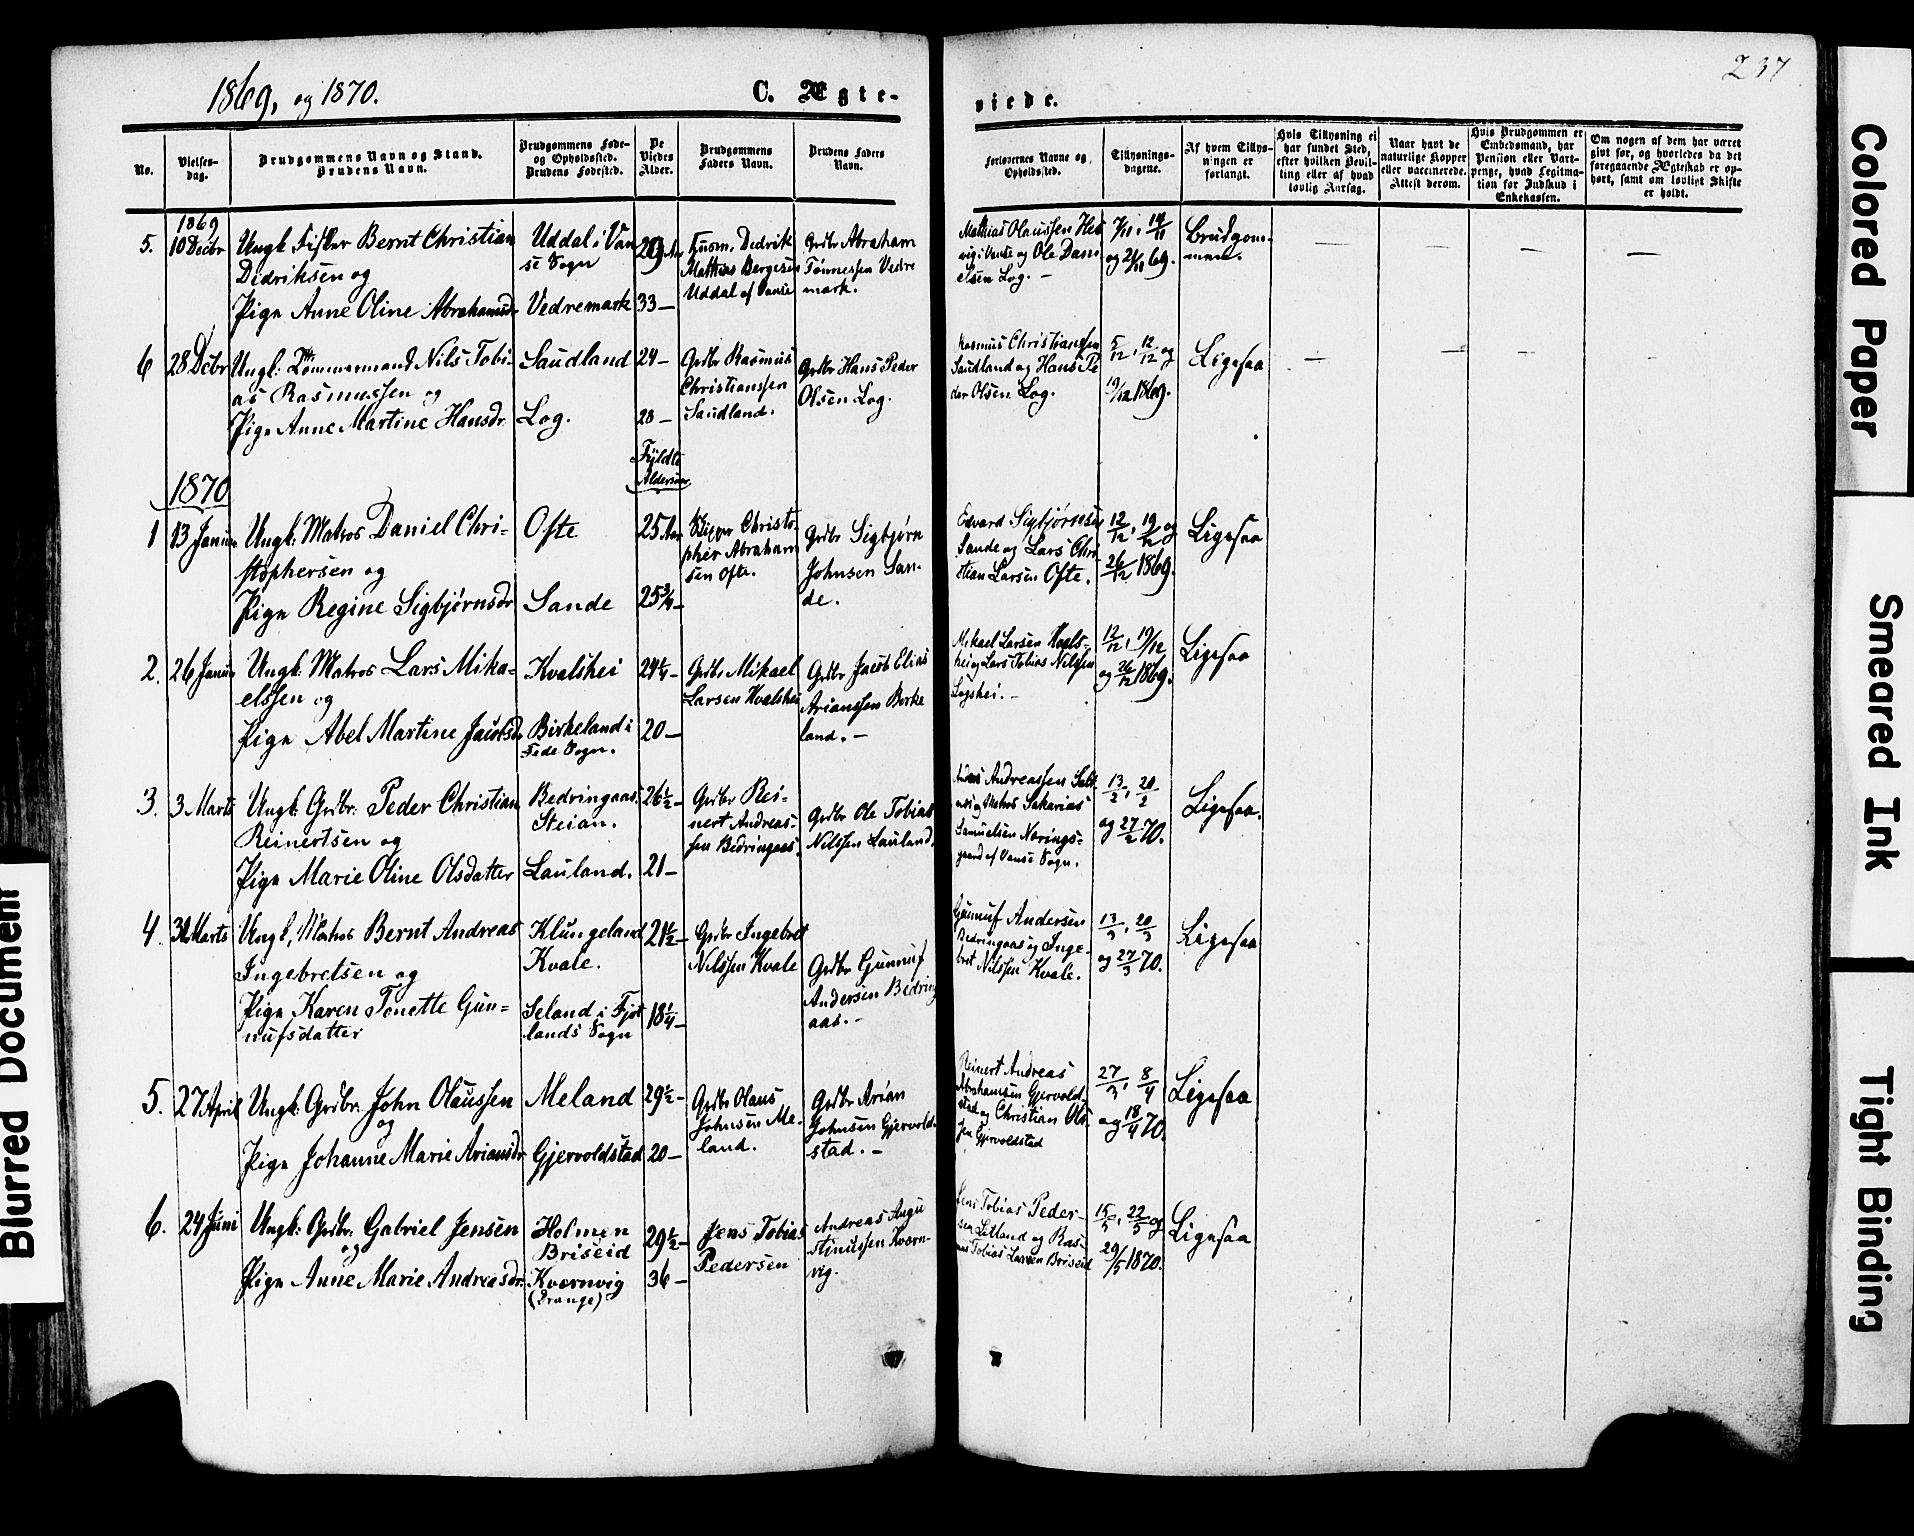 1869, og 1870.
C. Ægte-
viede.
237
No.
Vielses-
dag.
Brudgommens Navn og Stand.
Brudens Navn.
Brudgommens Føde-
og Opholdssted.
Brudens Fødested.
De
Viedes
Alder.
Brudgommens
Faders Navn.
Brudens Faders
Navn.
Forlovernes Navne og
Opholdssted.
Tillysnings-
dagene.
Af hvem Tillys-
ningen er
forlangt.
Hvis Tillysning ei
har fundet Sted,
efter hvilken Bevil-
ling eller af hvad
lovlig Aarsag.
Naar havt de
naturlige Kopper
eller vaccinerede.
Attest derom.
Hvis Brudgommen er
Embedsmand, har
Pension eller Vart-
penge, hvad Legitima-
tion for Indskud i
Enkekassen.
Om nogen af dem har været
givt før, og hvorledes da det
foregaaende Ægteskab er op-
hørt, samt om lovligt Skifte
er holdt.
1869
5.
10 Decbr
Ungk. Fisker Bernt Christian
Didriksen og
Pige Anne Oline Abrahamsdr
Uddal i Van
se Sogn
Vedremark
29 Aar
33 —
Husm. Dedrik
Mathias Bergesen
Uddal af Vanse
Grdbr Abraham
Tønnessen Vedre
mark.
Mathias Olaussen Hes
vig i Vanse og Ole Dani
elsen Log. —
7/11, 14/11
og 21/11 69.
Brudgom-
men.
6
28 Dcbr
Ungk: Tømmermand Nils Tobi-
as Rasmussen og
Pige Anne Martine Hansdr
Saudland
Log.
24 —
28 —
Grdbr Rasmus
Christianssen
Saudland.
Grdbr Hans Peder
Olsen Log.
Rasmus Christianssen
Saudland og Hans Pe
der Olsen Log.
5/12, 12/12 og
19/12 1869.
Ligesaa
Fyldte
Aldersaar
1870
1
13 Januar
Ungk: Matros Daniel Chri-
stophersen og
Pige Regine Sigbjørnsdr
Ofte
Sande
25 Aar
25 3/4 —
Skipper Christo-
pher Abraham
sen Ofte.
Grdbr Sigbjørn
Johnsen San-
de.
Edvard Sigbjørnsen
Sande og Lars Chri
stian Larsen Ofte.
12/12, 19/12 og
26/12 1869.
Ligesaa
2.
26 Januar
Ungk: Matros Lars Mika-
elssen og
Pige Abel Martine Jacobsdr
Kvalshei
Birkeland i
Fede Sogn.
24 1/4 —
20 —
Grdbr Mikael
Larsen Kvalshei
Grdbr Jacob Elias
Arianssen Birke
land. —
Mikael Larsen Kvals-
hei og Lars Tobias Nilssen
Logshei. —
12/12, 19/12
og 26/12 1869.
Ligesaa
3.
3 Marts
Ungk: Grdbr. Peder Christian
Reinertsen og
Pige Marie Oline Olsdatter
Bedringaas
Steian.
Lauland.
26 1/2 —
21 —
Grdbr Rei-
nert Andreas-
sen Bedringaas.
Grdbr Ole Tobias
Nilssen Lauland.
Andreassen
og Matros Sakarias
Samuelsen Norings-
gaard af Vanse Sogn.
13/2, 20/2
og 27/2 70.
Ligesaa.
4.
31 Marts
Ungk, Matros Bernt Andreas
Ingebretsen og
Pige Karen Tonette Gun-
nufsdatter
Klungeland
Kvale.
Seland i Fjot
lands Sogn
21 1/2 —
18 1/4 —
Grdbr Ingebret
Nilssen Kvale
Grdbr Gunnuf
Andersen Bedring
aas. —
Gunnuf Andersen
Bedringaas og Inge-
bret Nilssen Kvale.
13/3, 20/3
og 27/3 70.
Ligesaa
5.
27 April
Ungk: Grdbr. John Olaussen
og
Pige Johanne Marie Ariansdr
Meland
Gjervoldstad
29 1/2 —
20 —
Grdbr Olaus
Johnsen Me-
land.
Grdbr Arian
Johnsen Gjervold-
stad. —
Reinert Andreas
Abrahamsen Gjervold-
stad og Christian Ols
sen Gjervoldstad
27/3, 8/4
og 18/4 70.
Ligesaa
6.
24 Juni
Ungk: Grdbr: Gabriel Jensen
og
Pige Anne Marie Andreasdr.
Holmen
Briseid
Kvernvig
(Drange)
29 1/2 —
36 —
Jens Tobias
Pedersen
Andreas Augu
stinussen Kvern-
vig.
Jens Tobias Peder-
sen Letland og Ras-
mus Tobias Larsen Briseid
15/5, 22/5 og
29/5 1870.
Ligesaa
Blurred Document
Colored Paper
Smeared Ink
Tight Binding